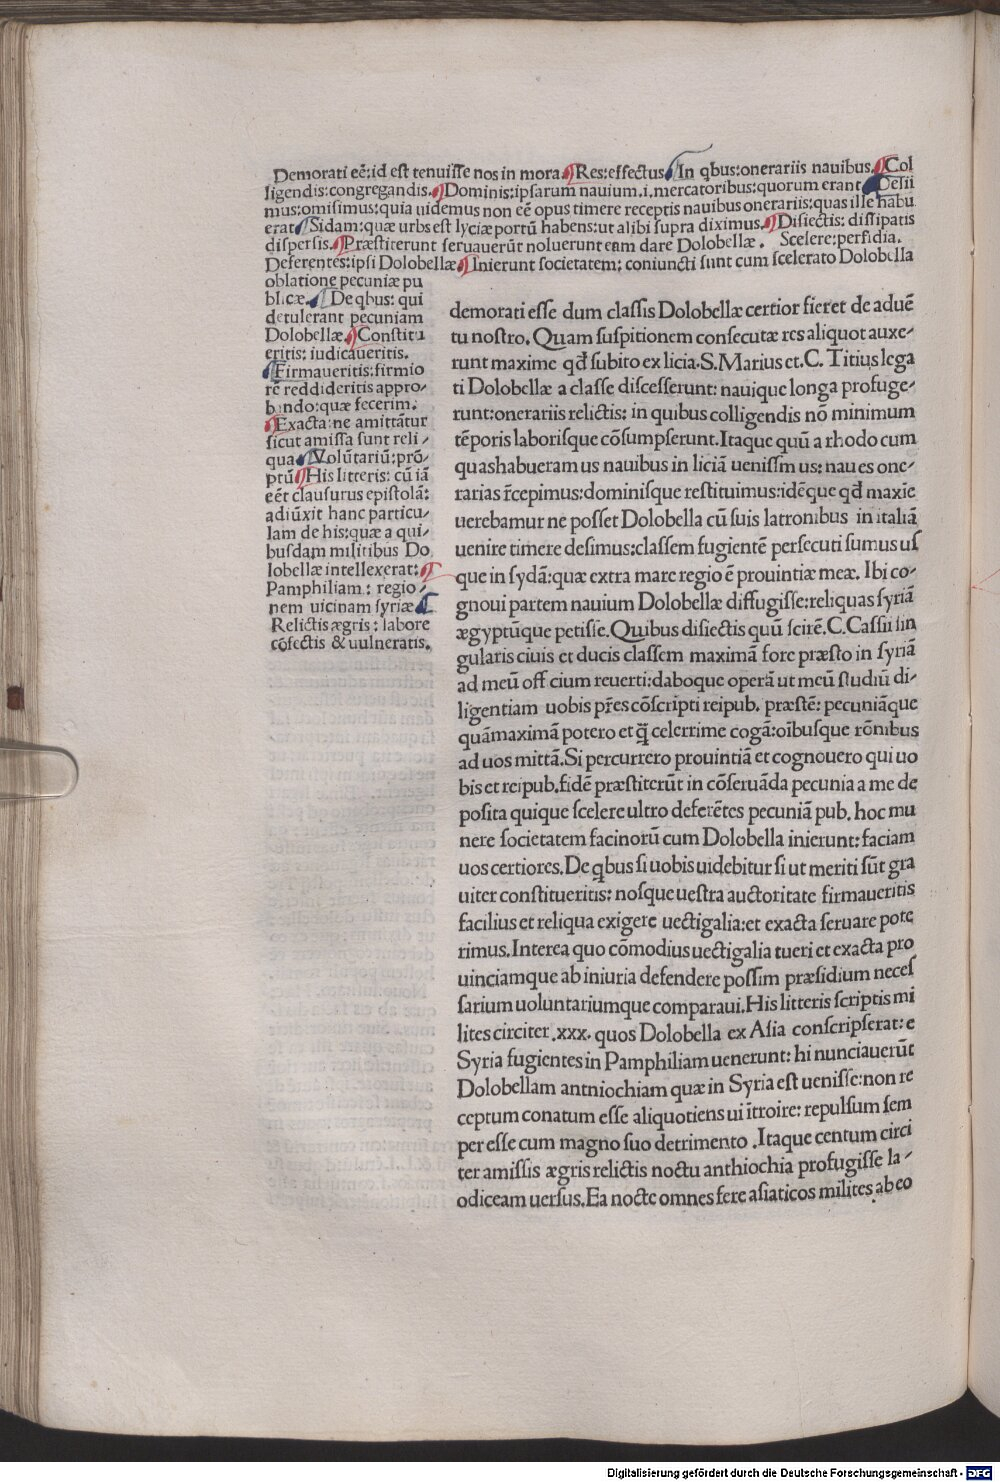 Demorati eē: id est tenuisse nos in mora ¶ Res: effectus ¶ In qbus: onerariis nauibus. ¶ Col
ligendis: congregandis. ¶ Dominis: ipsarum nauium .i. mercatoribus: quorum erant ¶ Desii
mus: omisimus: quia uidemus non eē opus timere receptis nauibus onerariis: quas ille habu
erat ¶ Sidam: quæ urbs est lyciæ portū habens: ut alibi supra diximus. ¶ Disiectis: dissipatis
dispersis. ¶ Præstiterunt seruauerūt noluerunt eam dare Dolobellæ. Scelere: perfidia.
Deferentes: ipsi Dolobellæ ¶ Inierunt societatem: coniuncti sunt cum scelerato Dolobella
oblatione pecuniæ pu
blicæ. ¶ De qbus: qui
detulerant pecuniam
Dolobellæ. ¶ Constitu
eritis: iudicaueritis.
¶ Firmaueritis: firmio
rē reddideritis appro/
bando: quæ fecerim.
¶ Exacta: ne amittātur
sicut amissa sunt reli/
qua ¶ Volūtariū: prō/
ptū ¶ His litteris: cū iā
eēt clausurus epistolā:
adiūxit hanc particu/
lam de his: quæ a qui/
busdam militibus Do
lobellæ intellexerat: ¶
Pamphiliam: regio/
nem uicinam syriæ ¶
Relictis ægris: labore
cōfectis & uulneratis.
demorati esse dum classis Dolobellæ certior fieret de aduē
tu nostro. Quam suspitionem consecutæ res aliquot auxe/
runt maxime qđ subito ex licia. S. Marius et. C. Titius lega
ti Dolobellæ a classe discesserunt: nauique longa profuge/
runt: onerariis relictis: in quibus colligendis nō minimum
tēporis laborisque cōsumpserunt. Itaque quū a rhodo cum
quashabueram us nauibus in liciā uenissm us: nau es one/
rarias r̄cepimus: dominisque restituimus: idēque qđ maxīe
uerebamur ne posset Dolobella cū suis latronibus in italiā
uenire timere desimus: classem fugientē persecuti sumus us
que in sydā: quæ extra mare regio ē prouintiæ meæ. Ibi co/
gnoui partem nauium Dolobellæ diffugisse: reliquas syriā
ægyptūque petisse. Quibus disiectis quū scirē. C. Cassii sin
gularis ciuis et ducis classem maximā fore præsto in syriā
ad meū off cium reuerti: daboque operā ut meū studiū di/
ligentiam uobis pr̄es cōscripti reipub. præstē: pecuniāque
quāmaximā potero et q̄ celerrime cogā: oībusque rōnibus
ad uos mittā. Si percurrero prouintiā et cognouero qui uo
bis et reipub. fidē præstiterūt in cōseruāda pecunia a me de
posita quique scelere ultro deferētes pecuniā pub. hoc mu
nere societatem facinorū cum Dolobella inierunt: faciam
uos certiores. De qbus si uobis uidebitur si ut meriti sūt gra
uiter constitueritis: nosque uestra auctoritate firmaueritis
facilius et reliqua exigere uectigalia: et exacta seruare pote
rimus. Interea quo cōmodius uectigalia tueri et exacta pro
uinciamque ab iniuria defendere possim præsidium neces
sarium uoluntariumque comparaui. His litteris scriptis mi
lites circiter .xxx. quos Dolobella ex Asia conscripserat: e
Syria fugientes in Pamphiliam uenerunt: hi nunciauerūt
Dolobellam antniochiam quæ in Syria est uenisse: non re
ceptum conatum esse aliquotiens ui ītroire: repulsum sem
per esse cum magno suo detrimento. Itaque centum circi
ter amissis ægris relictis noctu anthiochia profugisse la/
odiceam uersus. Ea nocte omnes fere asiaticos milites ab eo
Digitalisierung gefördert durch die Deutsche Forschungsgemeinschaft - DFG